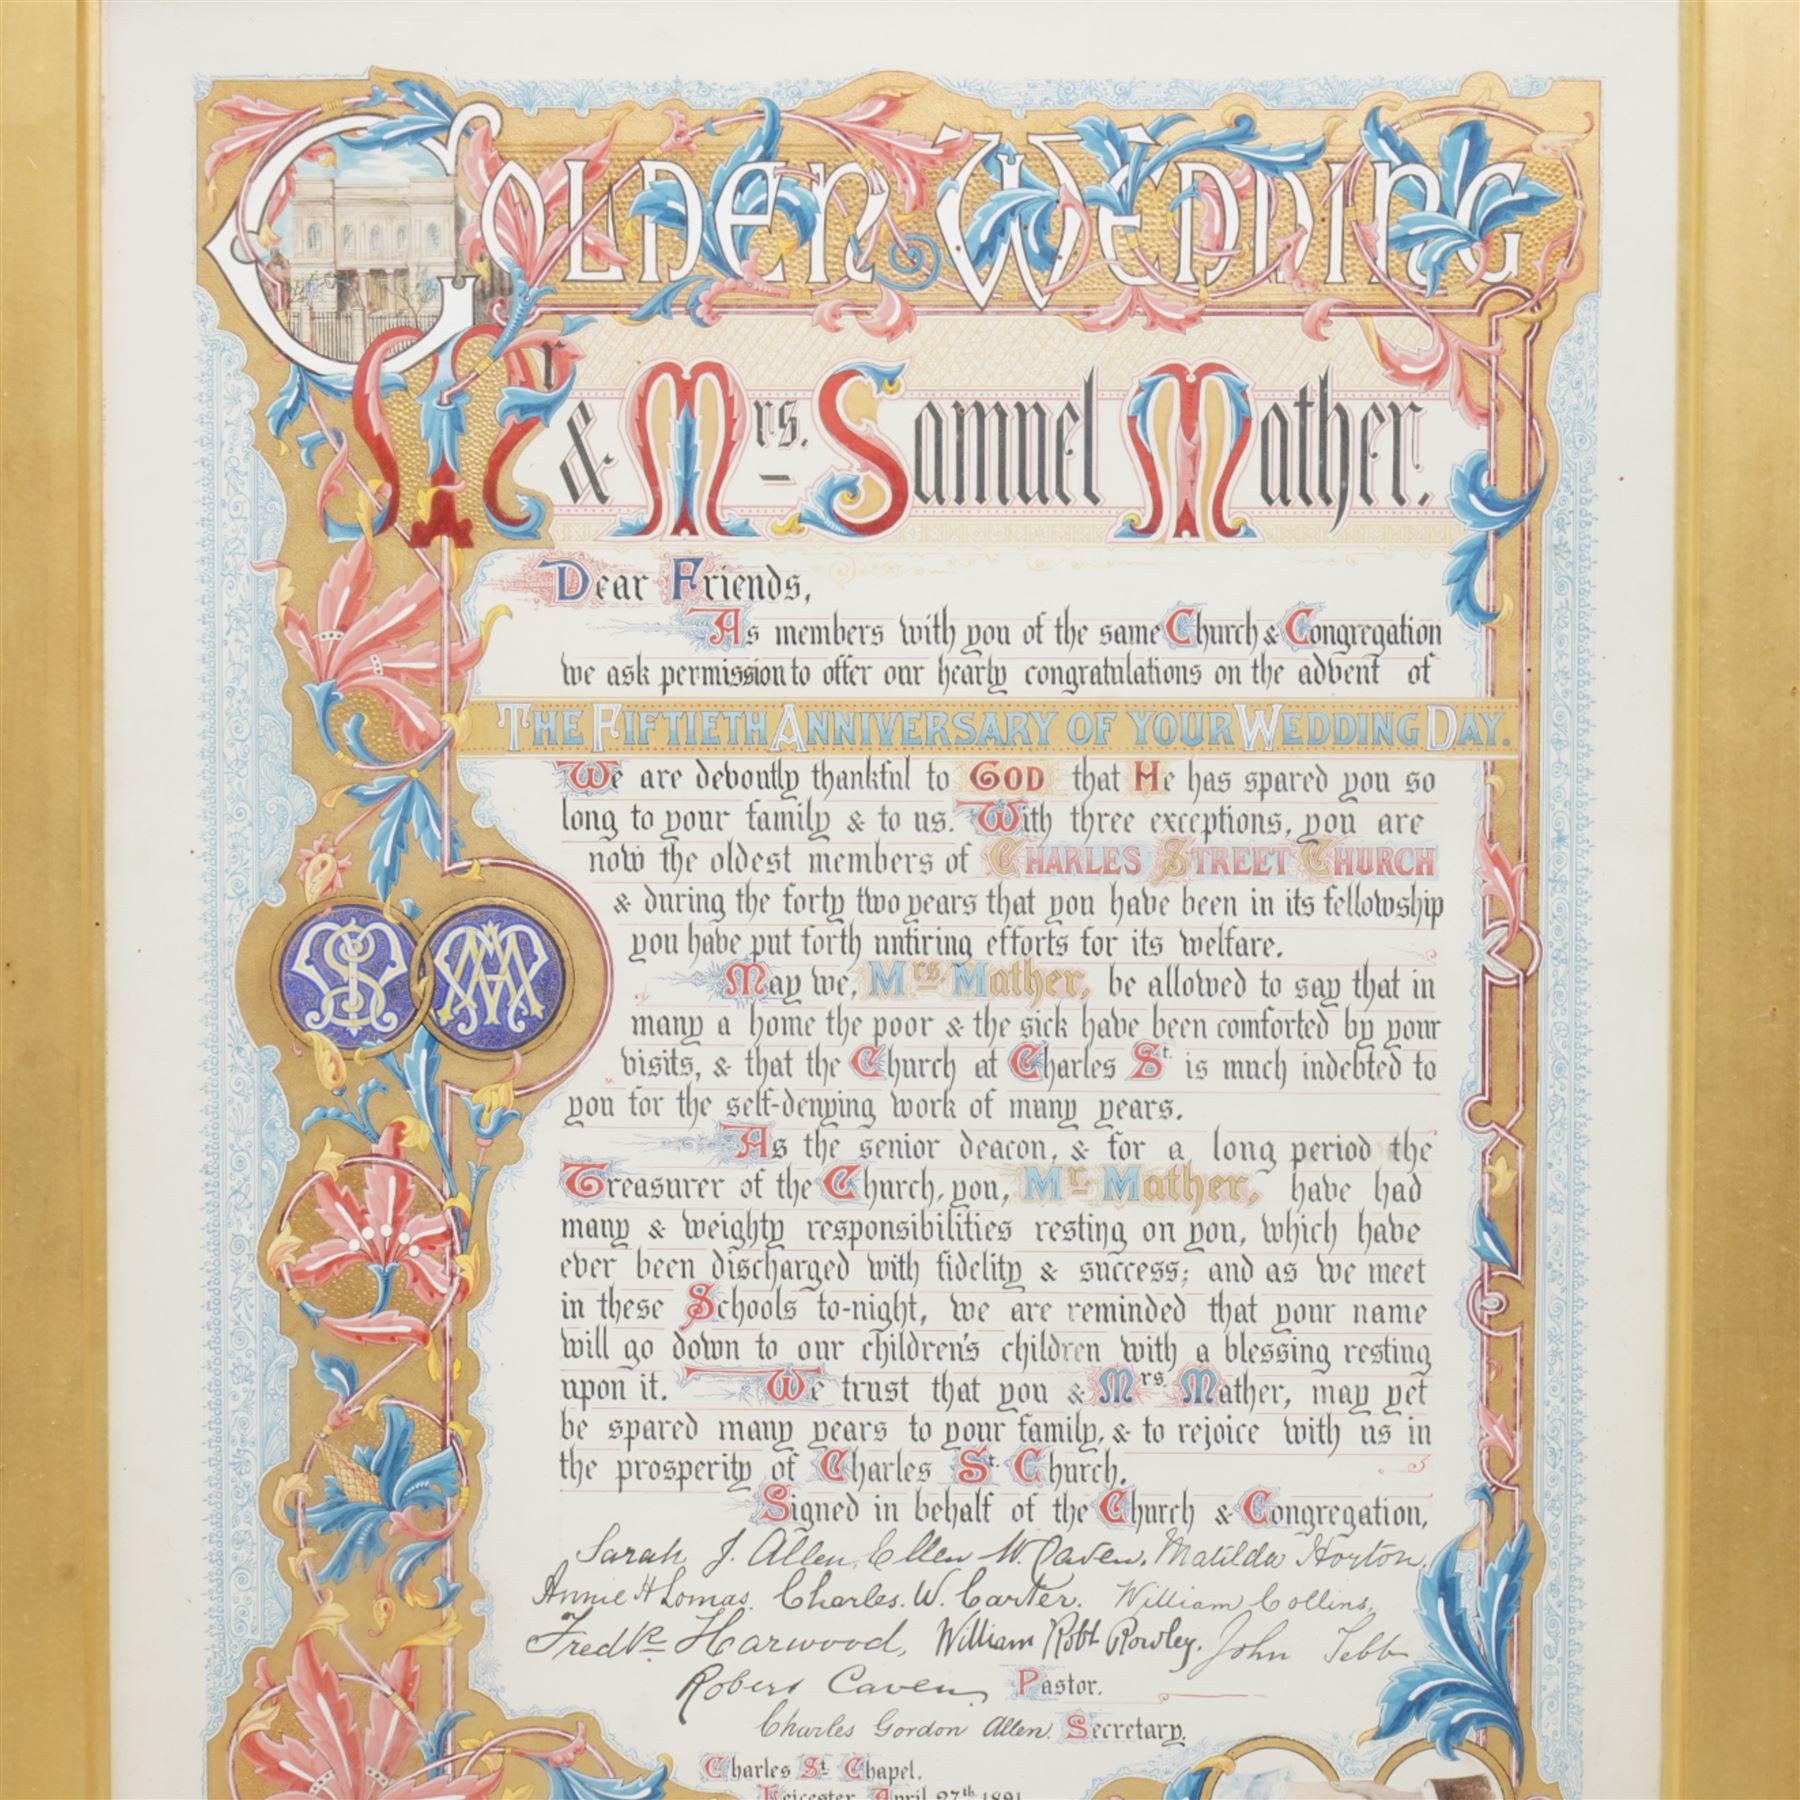 Golden Wedding
Mr & Mrs. Samuel Mather.
Dear Friends,
As members with you of the same Church & Congregation
we ask permission to offer our hearty congratulations on the advent of
THE FIFTIETH ANNIVERSARY OF YOUR WEDDING DAY.
We are devoutly thankful to GOD that He has spared you so
long to your family & to us. With three exceptions, you are
now the oldest members of CHARLES STREET CHURCH
& during the forty two years that you have been in its fellowship
you have put forth untiring efforts for its welfare.
May we, Mrs. Mather, be allowed to say that in
many a home the poor & the sick have been comforted by your
visits, & that the Church at Charles St. is much indebted to
you for the self-denying work of many years.
As the senior deacon, & for a long period the
Treasurer of the Church, you, Mr. Mather, have had
many & weighty responsibilities resting on you, which have
ever been discharged with fidelity & success; and as we meet
in these Schools to-night, we are reminded that your name
will go down to our children's children with a blessing resting
upon it. We trust that you & Mrs. Mather, may yet
be spared many years to your family, & to rejoice with us in
the prosperity of Charles St. Church.
Signed in behalf of the Church & Congregation,
Sarah J. Allen, Ellen W. Caven, Matilda Horton,
Annie H Lomas. Charles. W. Carter. William Collins,
Fredk Harwood, William Robt Rowley. John Tebb
Robert Caven, Pastor.
Charles Gordon Allen. Secretary.
Charles St. Chapel,
Leicester, April 27th 1891